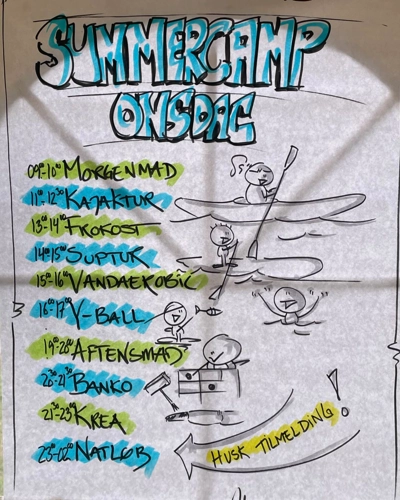 SUMMERCAMP
ONSDAG
09⁰⁰-10⁰⁰ MORGENMAD
11⁰⁰-12³⁰ KAJAKTUR
13⁰⁰-14⁰⁰ FROKOST
14⁰⁰-15⁰⁰ SUPTUR
15⁰⁰-16⁰⁰ VANDAEROBIC
16⁰⁰-17⁰⁰ V-BALL
19⁰⁰-20⁰⁰ AFTENSMAD
20³⁰-21³⁰ BANKO
21³⁰-23⁰⁰ KREA
23⁰⁰-02⁰⁰ NATLØB
HUSK TILMELDING!